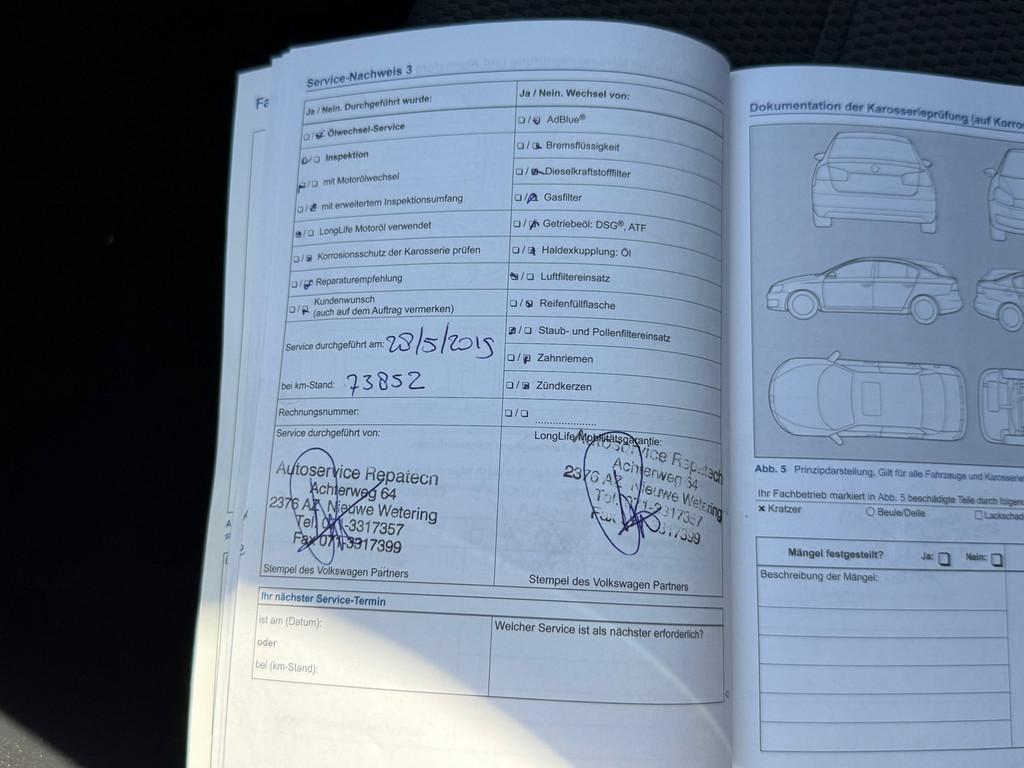 Fa
Service-Nachweis 3
Ja / Nein. Durchgeführt wurde:
❏/❏ Ölwechsel-Service
❏/❏ Inspektion
❏/❏ mit Motorölwechsel
❏/❏ mit erweitertem Inspektionsumfang
❏/❏ LongLife Motoröl verwendet
❏/❏ Korrosionsschutz der Karosserie prüfen
❏/❏ Reparaturempfehlung
❏/❏ Kundenwunsch
(auch auf dem Auftrag vermerken)
Service durchgeführt am: 28/5/2019
bei km-Stand: 73852
Rechnungsnummer:
Service durchgeführt von:
Autoservice Repatech
Achterweg 64
2376 AZ Nieuwe Wetering
Tel. 071-3317357
Fax 071-3317399
Stempel des Volkswagen Partners
Ja / Nein. Wechsel von:
❏/❏ AdBlue®
❏/❏ Bremsflüssigkeit
❏/❏ Dieselkraftstofffilter
❏/❏ Gasfilter
❏/❏ Getriebeöl: DSG®, ATF
❏/❏ Haldexkupplung: Öl
❏/❏ Luftfiltereinsatz
❏/❏ Reifenfüllflasche
❏/❏ Staub- und Pollenfiltereinsatz
❏/❏ Zahnriemen
❏/❏ Zündkerzen
❏/❏ ....................
LongLife Mobilitätsgarantie:
Autoservice Repatech
Achterweg 64
2376 AZ Nieuwe Wetering
Tel. 071-3317357
Fax 071-3317399
Stempel des Volkswagen Partners
Ihr nächster Service-Termin
ist am (Datum):
oder
bei (km-Stand):
Welcher Service ist als nächster erforderlich?
Dokumentation der Karosserieprüfung (auf Korro
Abb. 5 Prinzipdarstellung. Gilt für alle Fahrzeuge und Karosserie
Ihr Fachbetrieb markiert in Abb. 5 beschädigte Teile durch folgen
× Kratzer
○ Beule/Delle
□ Lackschad
Mängel festgestellt? Ja: ❏ Nein: ❏
Beschreibung der Mängel: